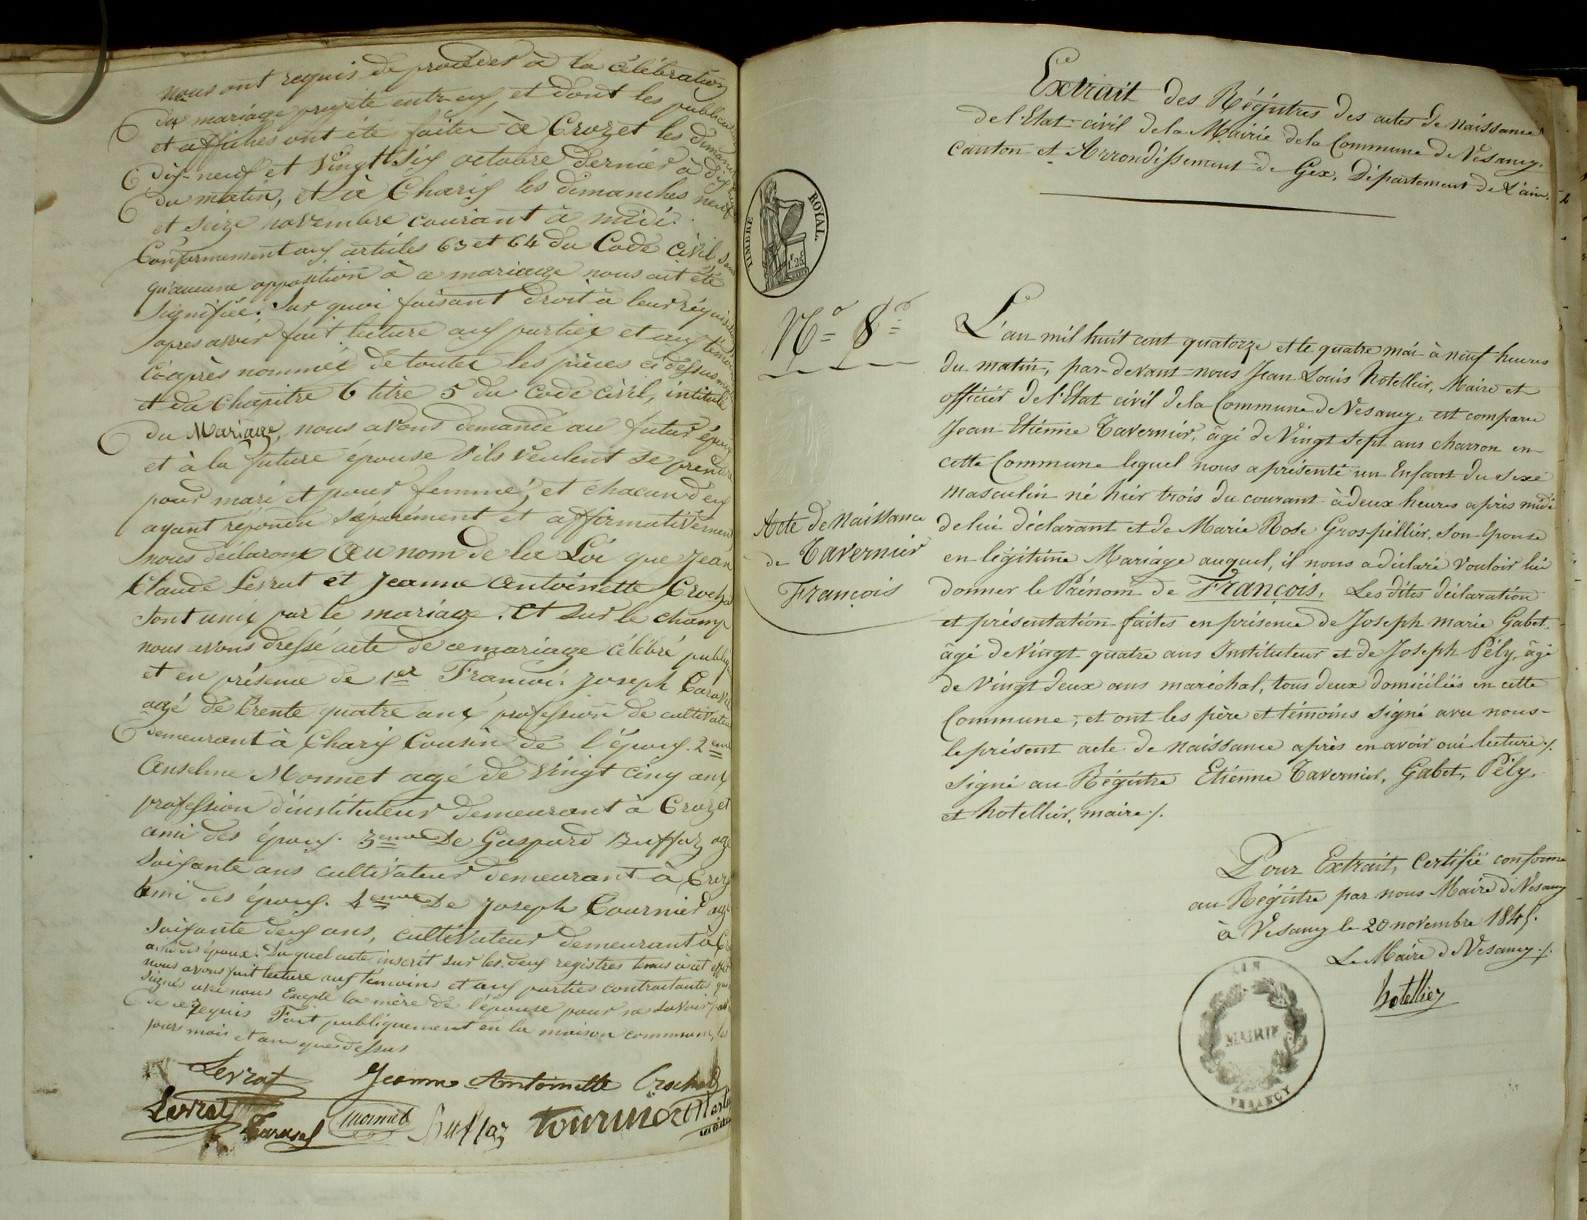 nous ont requis de procéder à la célébration
du mariage projeté entr'eux, et dont les publications
et affiches ont été faites à Crozet les dimanches
dix-neuf et vingt six octobre dernier à dix
du matin, et à Charix les dimanches neuf
et seize novembre courant à midi.
Conformément aux articles 63 et 64 du Code civil sans
qu'aucune opposition à ce mariage nous ait été
signifiée. Sur quoi faisant droit à leur réquisition
après avoir fait lecture aux parties et aux témoins
ci-après nommés de toutes les pièces ci dessus
et du Chapitre 6 titre 5 du code civil, intitulé
du Mariage, nous avons demandé au futur époux
et à la future épouse s'ils veulent se prendre
pour mari et pour femme, et chacun d'eux
ayant répondu séparément et affirmativement
nous déclarons Au nom de la Loi que Jean
Claude Levrat et Jeanne Antoinette Crochat
sont unis par le mariage. Et sur le champ
nous avons dressé acte de ce mariage célébré
et en présence de 1er François Joseph
agé de trente quatre ans profession de cultivateur
demeurant à Charix Cousin de l'époux. 2eme
Anselme Monnet agé de vingt cinq ans
profession d'instituteur demeurant à Crozet
ami des époux. 3eme De Gaspard Buffaz agé
soixante ans cultivateur demeurant à Crozet
ami des époux. 4eme De Joseph Tournier agé
soixante deux ans, cultivateur demeurant à
ami des époux. Duquel acte inscrit sur les deux registres tenus à cet effet
nous avons fait lecture aux témoins et aux parties contractantes qui
signés avec nous Excepté la mère de l'épouse pour ne savoir
de ce requis Fait publiquement en la maison commune, les
jours mois et an que dessus
Levrat Jeanne Antoinette Crochat
Levrat Monnet Buffaz Tournier
Extrait des Régistres des actes de naissance
de l'Etat-civil de la Mairie de la Commune de Vesancy,
Canton et Arrondissement de Gex, Département de L'ain.
TIMBRE ROYAL.
1f 25
No 8
L'an mil huit cent quatorze et le quatre mai à neuf heures
du matin, par-devant-nous Jean Louis hotellier, Maire et
officier de l'Etat civil de la Commune de Vesancy, est comparu
Jean Etiénne Tavernier, âgé de Vingt sept ans charron en
cette Commune lequel nous a présenté un Enfant du sexe
masculin né hier trois du courant à deux heures après midi
Acte de Naissance
de Tavernier
François
de lui déclarant et de Marie Rose Grospellier, Son Epouse
en légitime Mariage auquel, il nous a déclaré vouloir lui
donner le Prénom de François. Les dites déclaration
et présentation faites en présence de Joseph marie Gabet
âgé de Vingt quatre ans Instituteur et de Joseph Pély, âgé
de Vingt deux ans maréchal, tous deux domiciliés en cette
Commune, et ont les père et témoins signé avec nous-
le présent acte de Naissance après en avoir oui lecture /.
signé au Régistre Etiénne Tavernier, Gabet, Pély,
et hotellier, maire /.
Pour Extrait, Certifié conforme
au Régistre par nous Maire de Vesancy
à Vesancy le 20 novembre 1845.
Le Maire de Vesancy /.
hotellier
AIN
MAIRIE
VESANCY